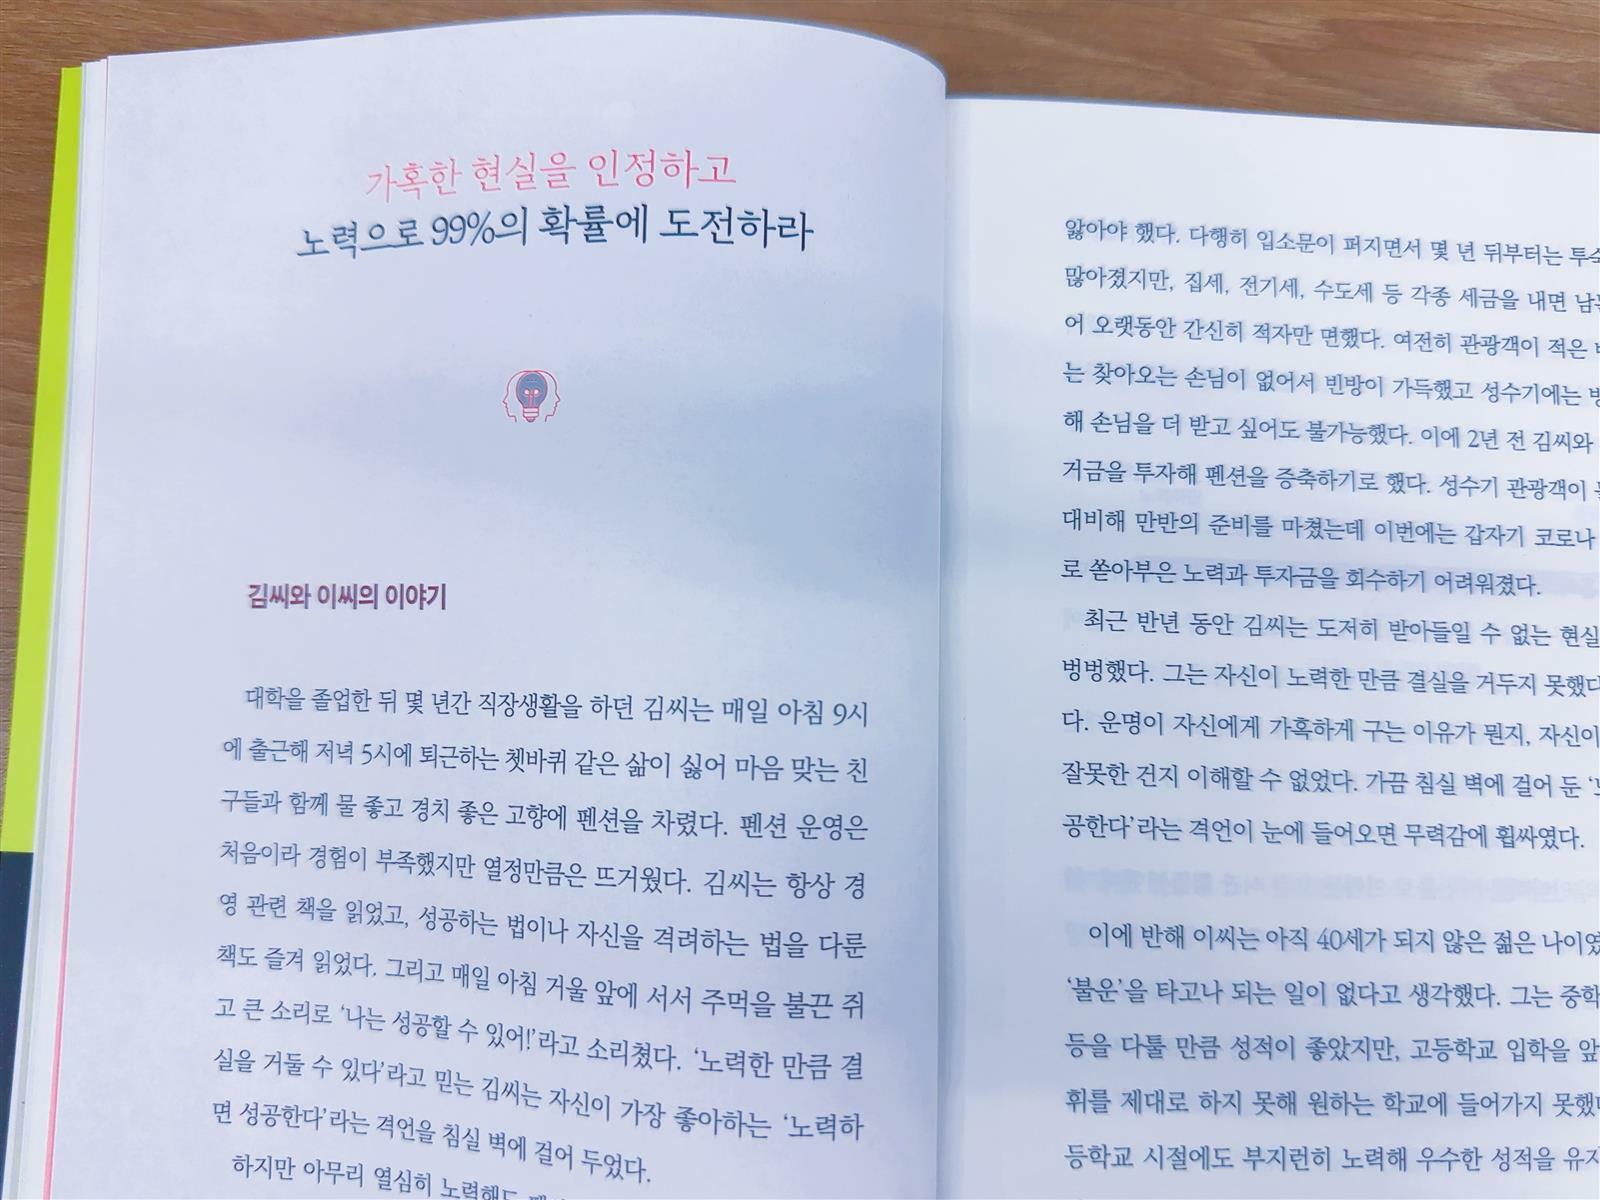 가혹한 현실을 인정하고
노력으로 99%의 확률에 도전하라
김씨와 이씨의 이야기
대학을 졸업한 뒤 몇 년간 직장생활을 하던 김씨는 매일 아침 9시
에 출근해 저녁 5시에 퇴근하는 쳇바퀴 같은 삶이 싫어 마음 맞는 친
구들과 함께 물 좋고 경치 좋은 고향에 펜션을 차렸다. 펜션 운영은
처음이라 경험이 부족했지만 열정만큼은 뜨거웠다. 김씨는 항상 경
영 관련 책을 읽었고, 성공하는 법이나 자신을 격려하는 법을 다룬
책도 즐겨 읽었다. 그리고 매일 아침 거울 앞에 서서 주먹을 불끈 쥐
고 큰 소리로 ‘나는 성공할 수 있어!’라고 소리쳤다. ‘노력한 만큼 결
실을 거둘 수 있다’라고 믿는 김씨는 자신이 가장 좋아하는 ‘노력하
면 성공한다’라는 격언을 침실 벽에 걸어 두었다.
하지만 아무리 열심히 노력해도
앓아야 했다. 다행히 입소문이 퍼지면서 몇 년 뒤부터는
많아졌지만, 집세, 전기세, 수도세 등 각종 세금을 내면
어 오랫동안 간신히 적자만 면했다. 여전히 관광객이 적은
는 찾아오는 손님이 없어서 빈방이 가득했고 성수기에는
해 손님을 더 받고 싶어도 불가능했다. 이에 2년 전 김씨와
거금을 투자해 펜션을 증축하기로 했다. 성수기 관광객이
대비해 만반의 준비를 마쳤는데 이번에는 갑자기 코로나
로 쏟아부은 노력과 투자금을 회수하기 어려워졌다.
최근 반년 동안 김씨는 도저히 받아들일 수 없는 현실
벙벙했다. 그는 자신이 노력한 만큼 결실을 거두지 못했다
다. 운명이 자신에게 가혹하게 구는 이유가 뭔지, 자신이
잘못한 건지 이해할 수 없었다. 가끔 침실 벽에 걸어 둔
공한다’라는 격언이 눈에 들어오면 무력감에 휩싸였다.
이에 반해 이씨는 아직 40세가 되지 않은 젊은 나이였
‘불운’을 타고나 되는 일이 없다고 생각했다. 그는 중학
등을 다툴 만큼 성적이 좋았지만, 고등학교 입학을 앞
휘를 제대로 하지 못해 원하는 학교에 들어가지 못했
등학교 시절에도 부지런히 노력해 우수한 성적을 유지